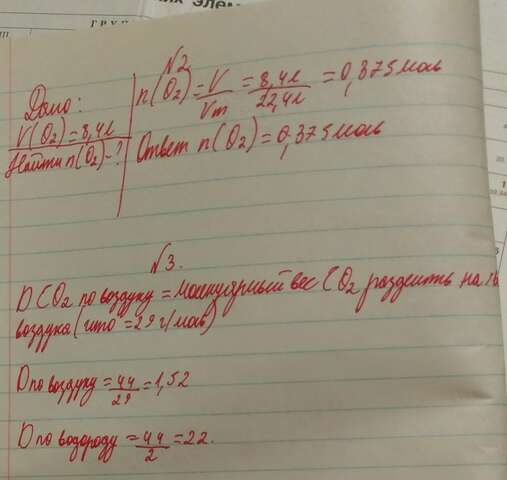 №2
Дано:
V(O₂)=8,4л
Найти n(O₂)-?
n(O₂)=V/Vm=8,4л/22,4л=0,375моль
Ответ n(O₂)=0,375моль
№3.
D CO₂ по воздуху = молекулярный вес CO₂ разделить на
воздуха (что =29 г/моль)
D по воздуху =44/29=1,52
D по водороду =44/2=22.